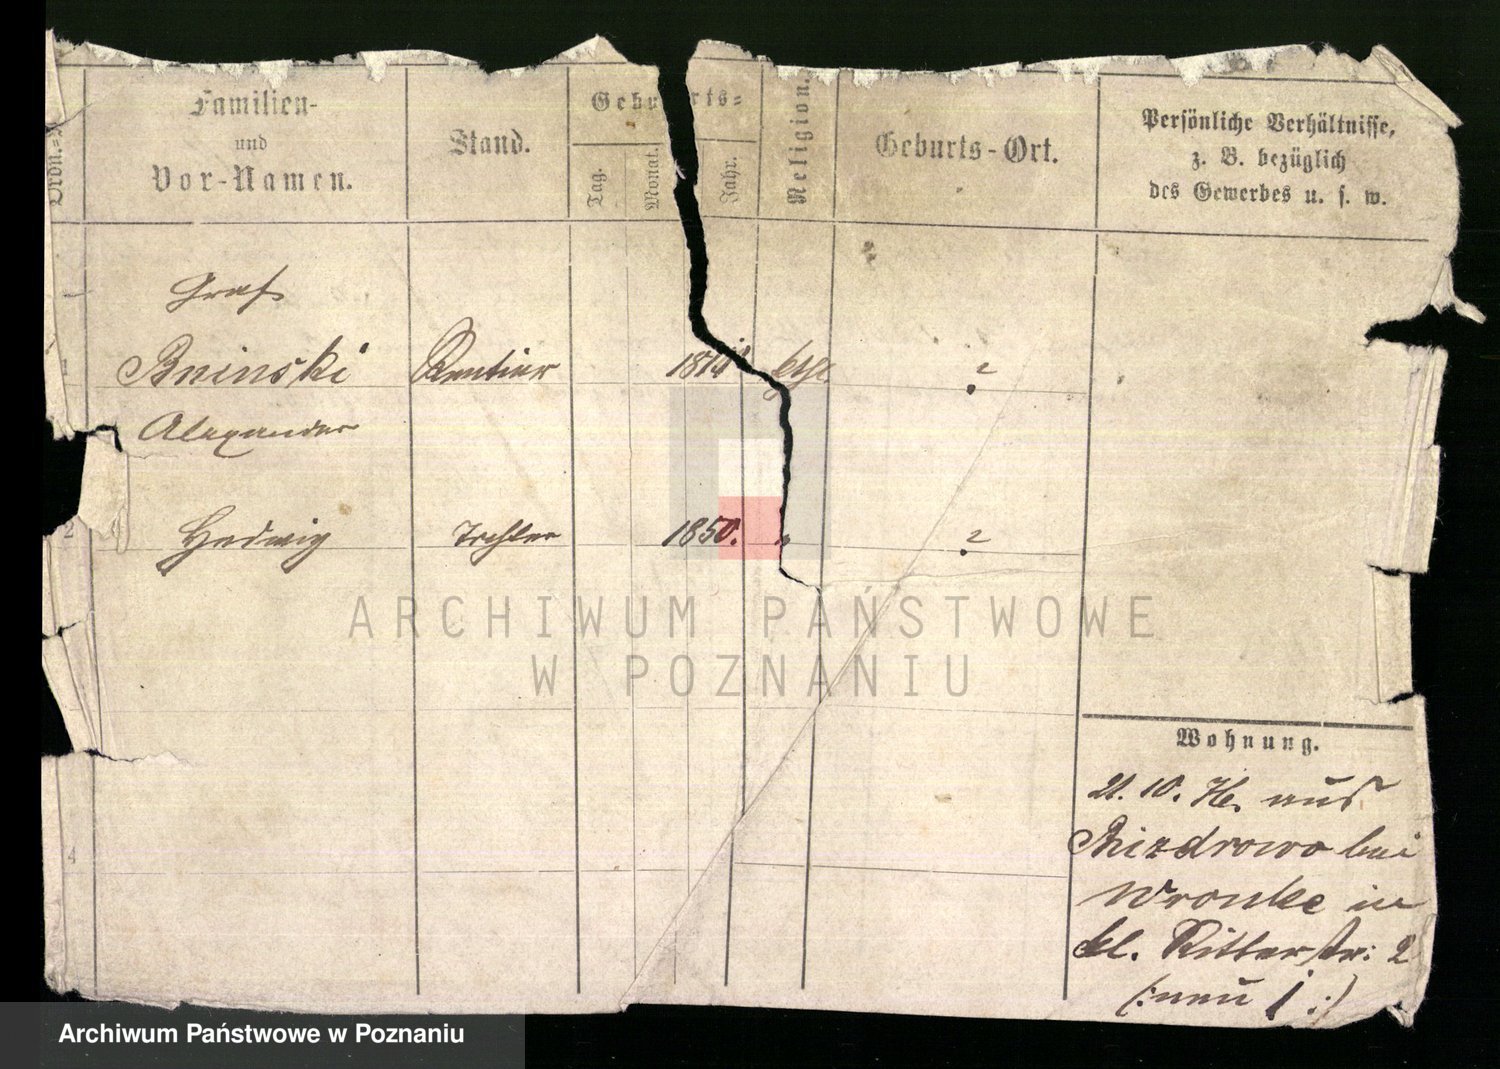 Ordn.=
Familien-
und
Vor-Namen.
Stand.
Geburts=
Tag.
Monat.
Jahr.
Religion.
Geburts-Ort.
Persönliche Verhältnisse,
z. B. bezüglich
des Gewerbes u. s. w.
Graf
1 Bninski Rentier kth. ?
Alexander
2 Hedwig Tochter 1850. " ?
4
Wohnung.
21. 10. aus
bei
Wronke in
kl. Ritterstr: 2
(:neu 1:)
ARCHIWUM PAŃSTWOWE
W POZNANIU
Archiwum Państwowe w Poznaniu